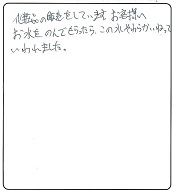 化粧品の販売をしています。お客様に
お水をのんでもらったら、この水やわらかいねって
いわれました。